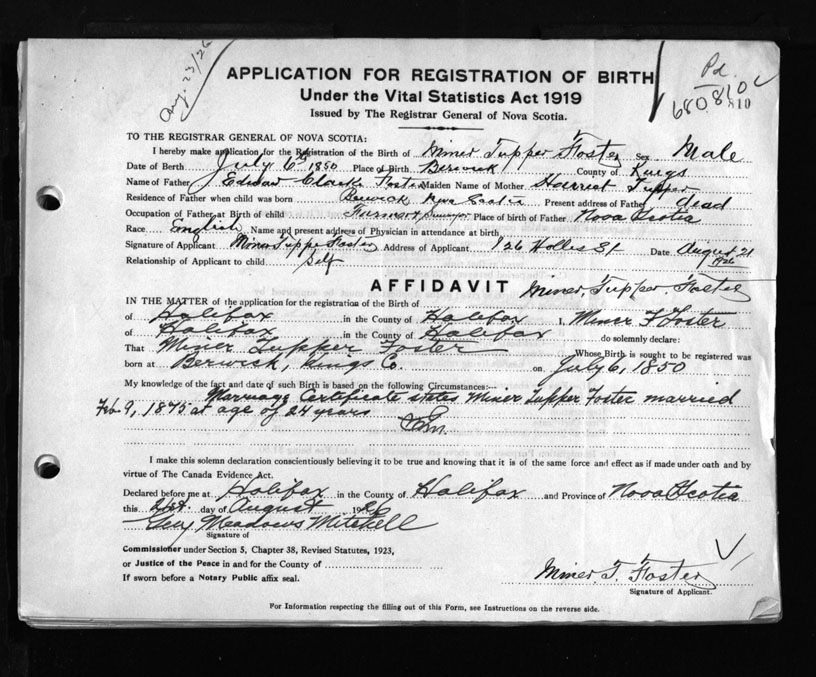 Aug. 23/26
Pd.
680810
810
APPLICATION FOR REGISTRATION OF BIRTH
Under the Vital Statistics Act 1919
Issued by The Registrar General of Nova Scotia.
TO THE REGISTRAR GENERAL OF NOVA SCOTIA:
I hereby make application for the Registration of the Birth of Miner Tupper Foster Sex Male
Date of Birth July 6th 1850 Place of Birth Berwick County of Kings
Name of Father Edward Clarke Foster Maiden Name of Mother Harriet Tupper
Residence of Father when child was born Berwick, Nova Scotia Present address of Father dead
Occupation of Father at Birth of child Farmer & Surveyor Place of birth of Father Nova Scotia
Race English Name and present address of Physician in attendance at birth
Signature of Applicant Miner Tupper Foster Address of Applicant 126 Hollis St Date August 21 1926
Relationship of Applicant to child Self
AFFIDAVIT Miner, Tupper, Foster
IN THE MATTER of the application for the registration of the Birth of
of Halifax in the County of Halifax I, Miner T Foster
of Halifax in the County of Halifax do solemnly declare:
That Miner Tupper Foster Whose Birth is sought to be registered was
born at Berwick, Kings Co. on July 6, 1850
My knowledge of the fact and date of such Birth is based on the following Circumstances:—
Marriage Certificate states Miner Tupper Foster married
Feb. 9, 1875 at age of 24 years
I make this solemn declaration conscientiously believing it to be true and knowing that it is of the same force and effect as if made under oath and by
virtue of The Canada Evidence Act.
Declared before me at Halifax in the County of Halifax and Province of Nova Scotia
this 21st. day of August 1926
Guy Meadows Mitchell
Signature of
Commissioner under Section 5, Chapter 38, Revised Statutes, 1923,
or Justice of the Peace in and for the County of
If sworn before a Notary Public affix seal.
Miner. T. Foster
Signature of Applicant.
For Information respecting the filling out of this Form, see Instructions on the reverse side.